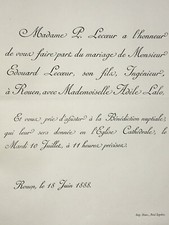 Madame P. Lecœur a l'honneur
de vous faire part du mariage de Monsieur
Edouard Lecœur, son fils, Ingénieur
à Rouen, avec Mademoiselle Adèle Lalo.
Et vous prie d'assister à la Bénédiction nuptiale
qui leur sera donnée en l'Eglise Cathédrale, le
Mardi 10 Juillet, à 11 heures précises.
Rouen, le 18 Juin 1888.